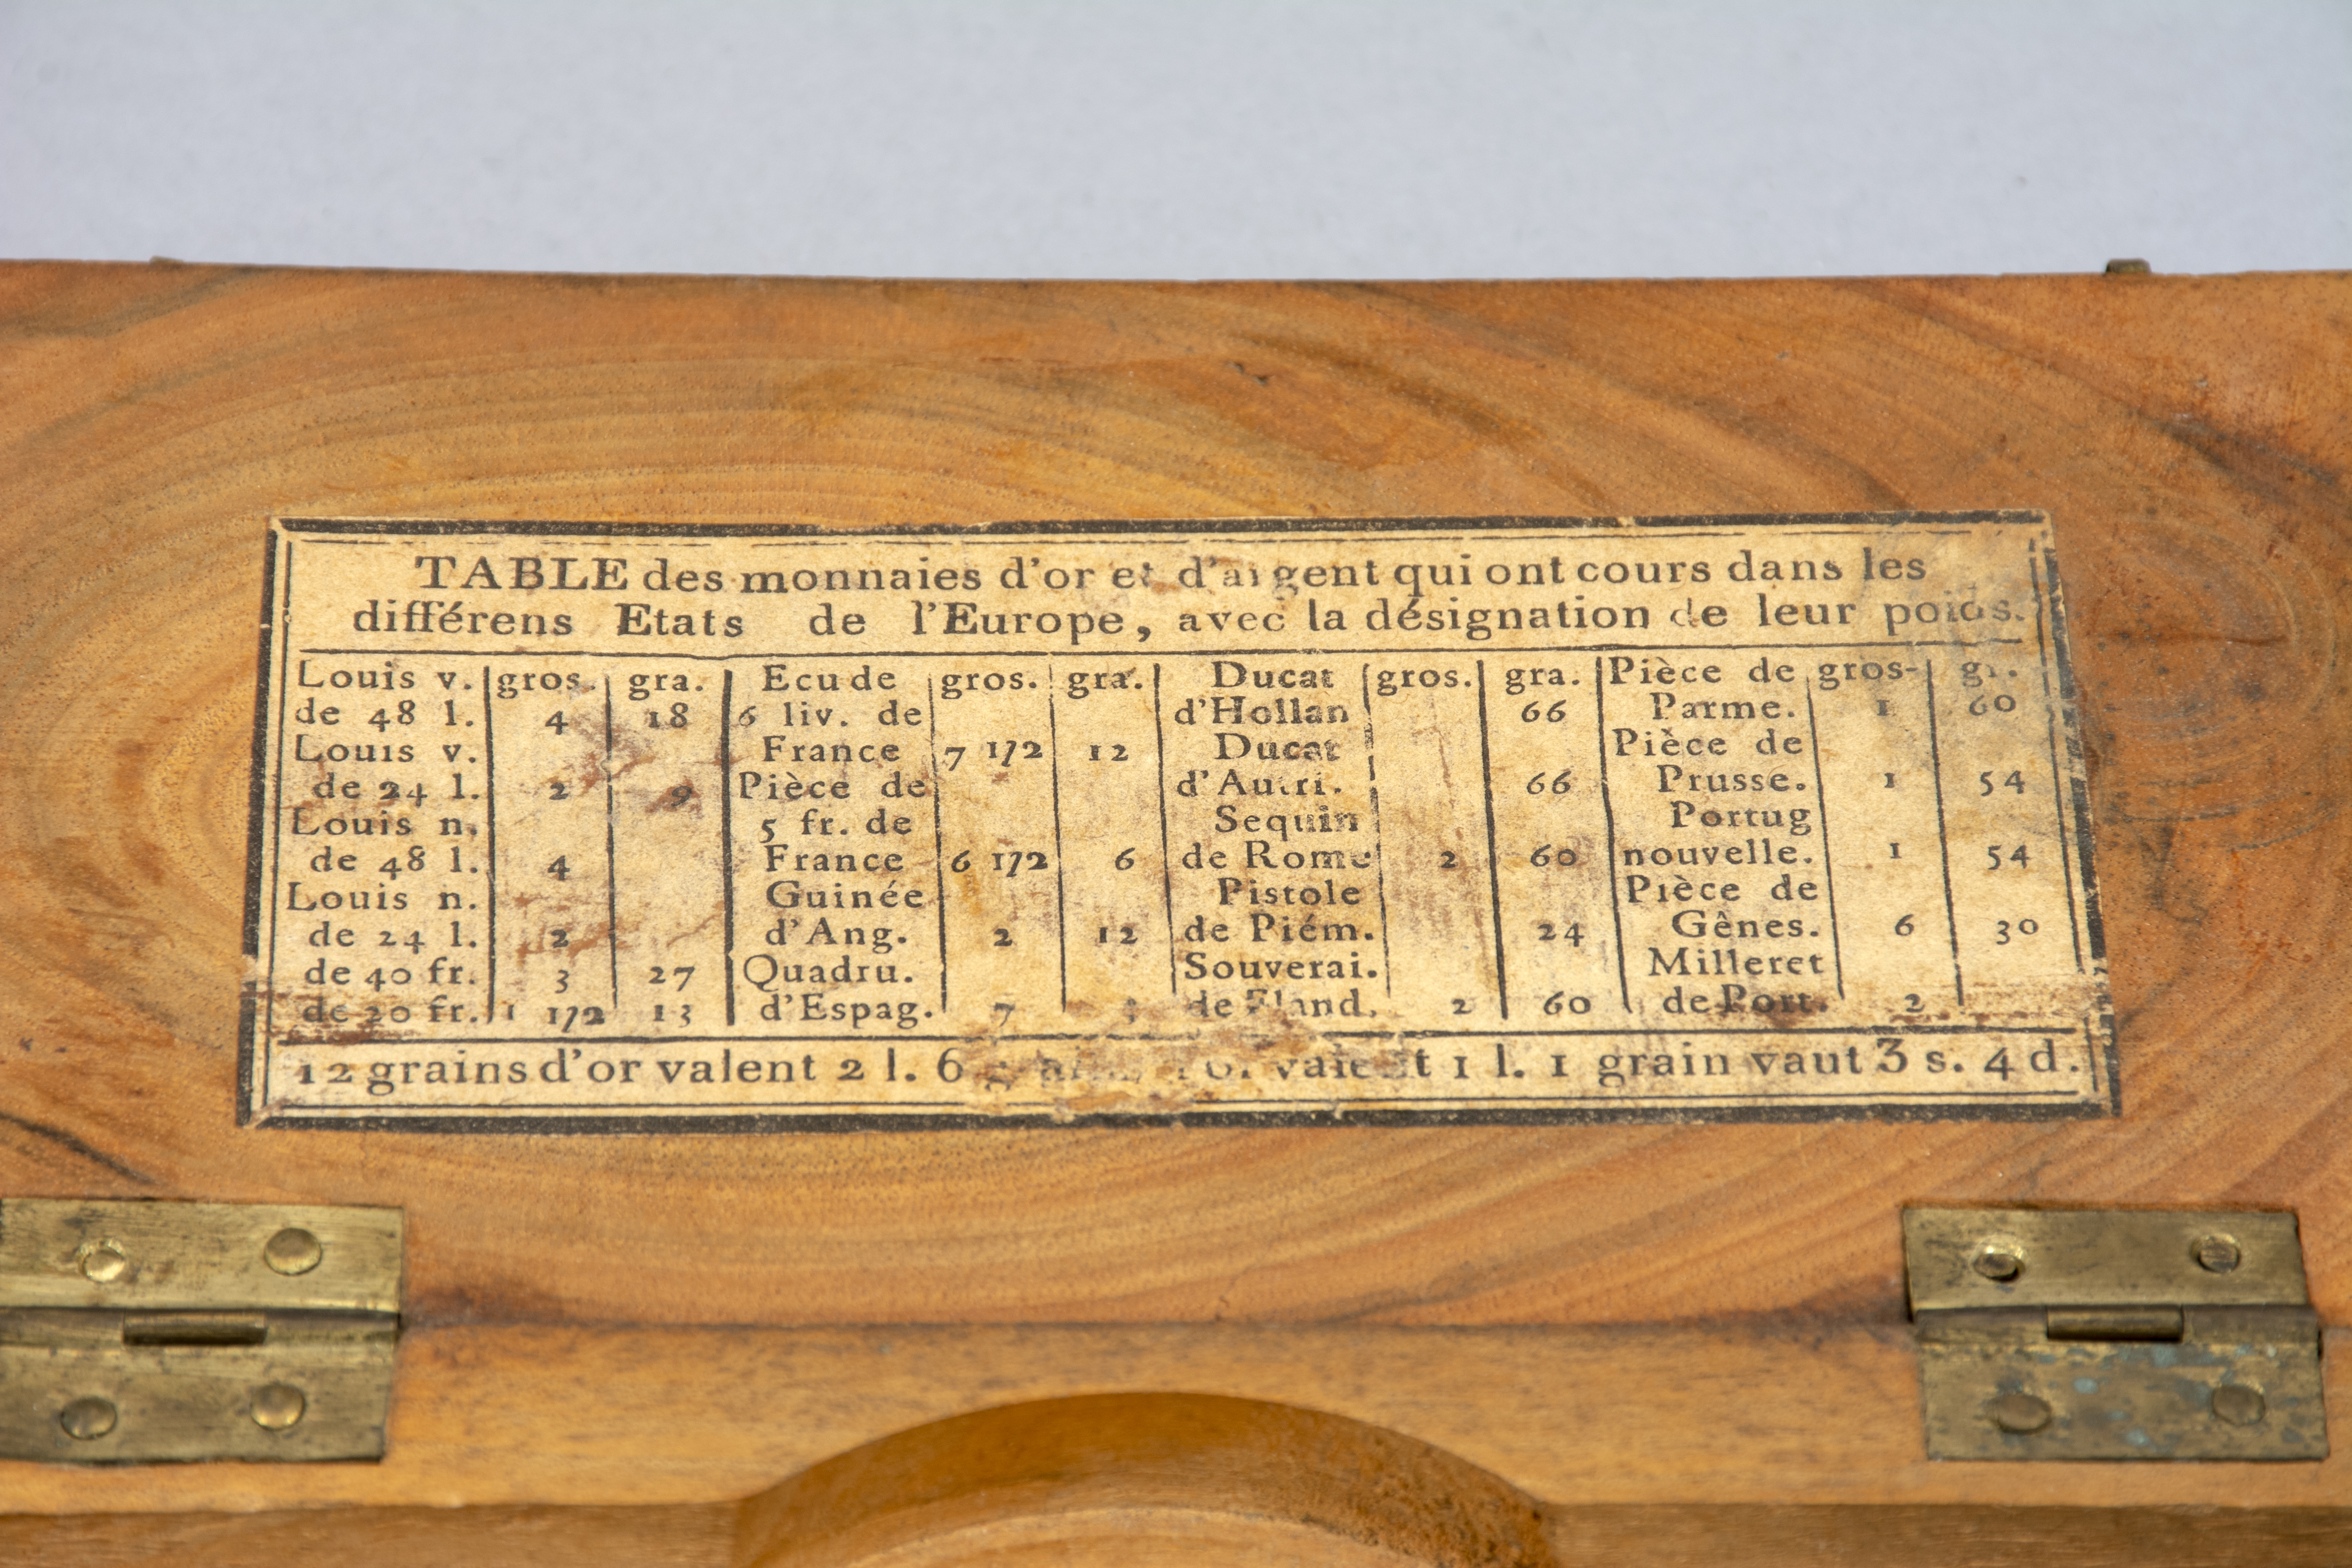 TABLE des monnaies d'or et d'argent qui ont cours dans les
différens Etats de l'Europe, avec la désignation de leur poids.
Louis v. gros. gra.
de 48 l. 4 18
Louis v.
de 24 l. 2 9
Louis n.
de 48 l. 4
Louis n.
de 24 l. 2
de 40 fr. 3 27
de 20 fr. 1 1/2 13
Ecu de gros. gra.
6 liv. de
France 7 1/2 12
Pièce de
5 fr. de
France 6 1/2 6
Guinée
d'Ang. 2 12
Quadru.
d'Espag. 7
Ducat gros. gra.
d'Hollan 66
Ducat
d'Autri. 66
Sequin
de Rome 2 60
Pistole
de Piém. 24
Souverai.
de Fland. 2 60
Pièce de gros- gr.
Parme. 1 60
Pièce de
Prusse. 1 54
Portug
nouvelle. 1 54
Pièce de
Gênes. 6 30
Milleret
de Port. 2
12 grains d'or valent 2 l. 6 valent 1 l. 1 grain vaut 3 s. 4 d.